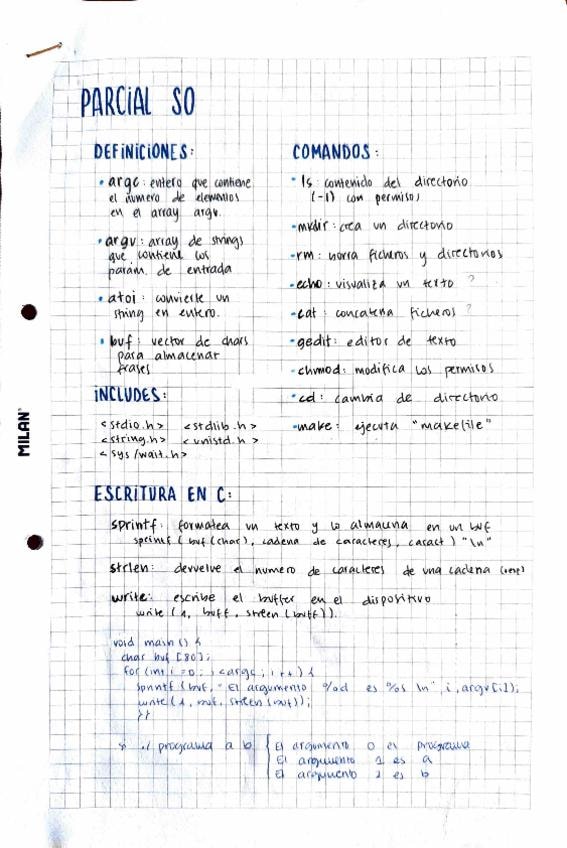 PARCIAL SO
DEFINICIONES:
• argc: entero que contiene
el numero de elementos
en el array argv.
• argv: array de strings
que contiene los
param. de entrada
• atoi: convierte un
string en entero.
• buf: vector de chars
para almacenar
frases
INCLUDES:
<stdio.h> <stdlib.h>
<string.h> <unistd.h>
<sys/wait.h>
COMANDOS:
• ls: contenido del directorio
(-l) con permisos
- mkdir: crea un directorio
- rm: borra ficheros y directorios
- echo: visualiza un texto ?
- cat: concatena ficheros ?
- gedit: editor de texto
- chmod: modifica los permisos
• cd: cambia de directorio
- make: ejecuta "makefile"
MILAN
ESCRITURA EN C:
sprintf: formatea un texto y lo almacena en un buf
sprintf (buf(char), cadena de caracteres, caract) "\n"
strlen: devuelve el numero de caracteres de una cadena
write: escribe el buffer en el dispositivo
write (1, buff, strlen (buff)).
void main () {
char buf [80];
for (int i = 0; i < argc; i++) {
sprintf (buf, "El argumento %d es %s \n", i, argv[i]);
write (1, buf, strlen (buf));
}}
si ./ programa a b { El argumento 0 es programa
El argumento 1 es a
El argumento 2 es b